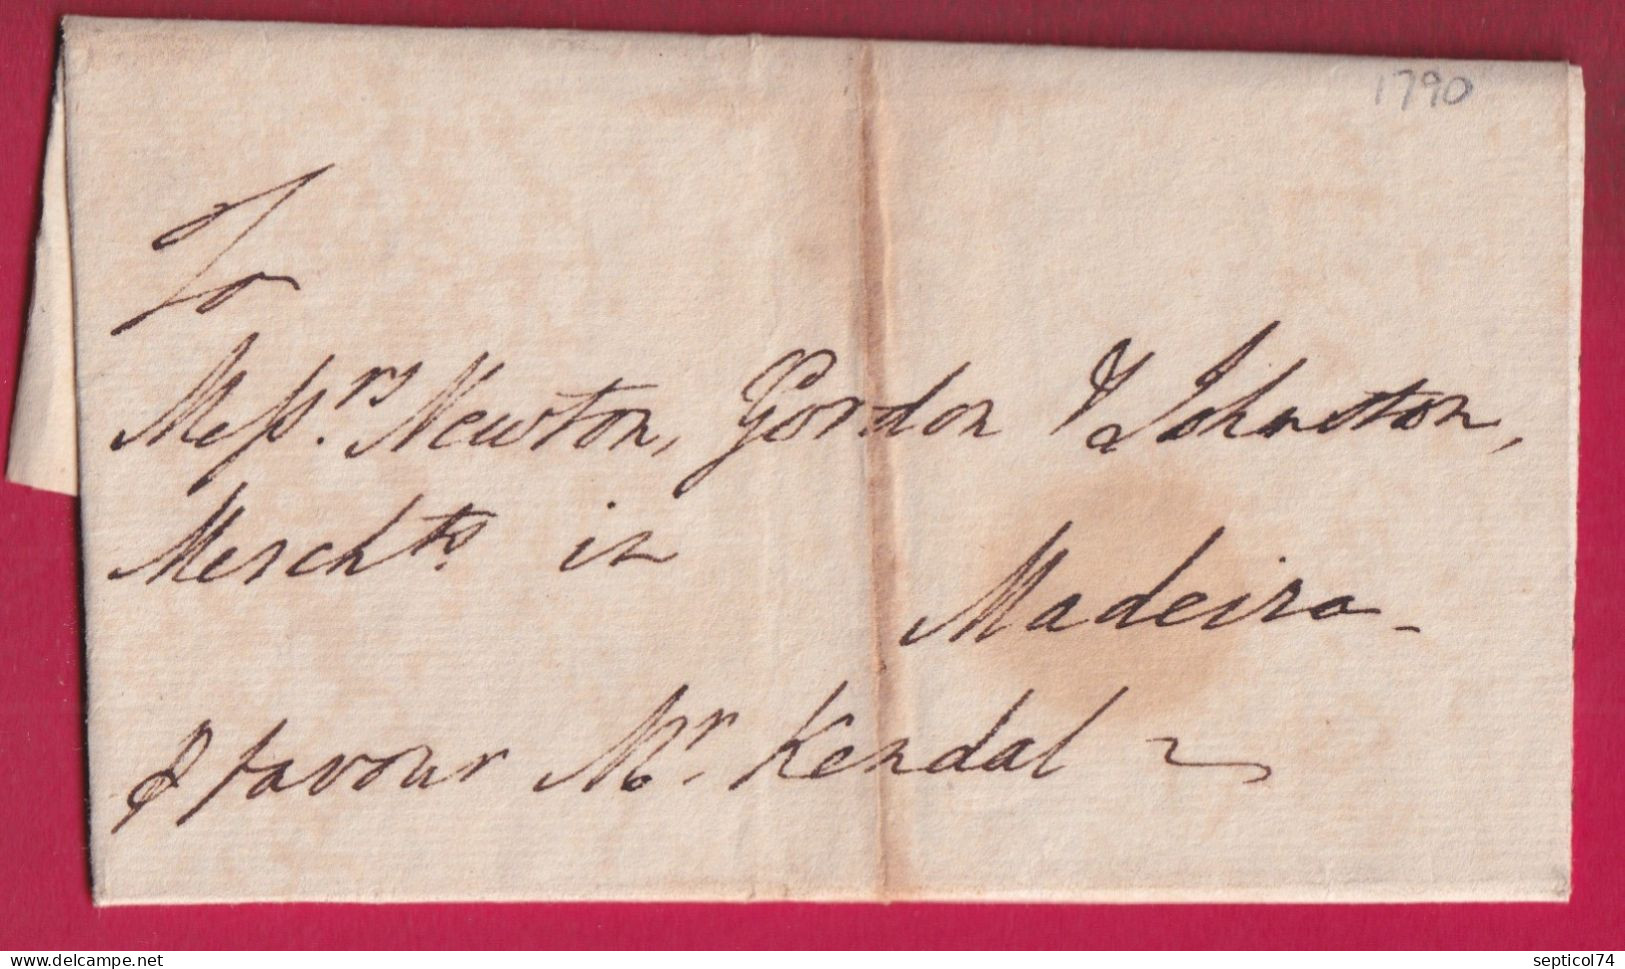 1790
To
Messrs. Newton, Gordon & Johnston,
Merchts. in
Madeira -
P favour Mr. Kendal ~
delcampe.net
septicol74